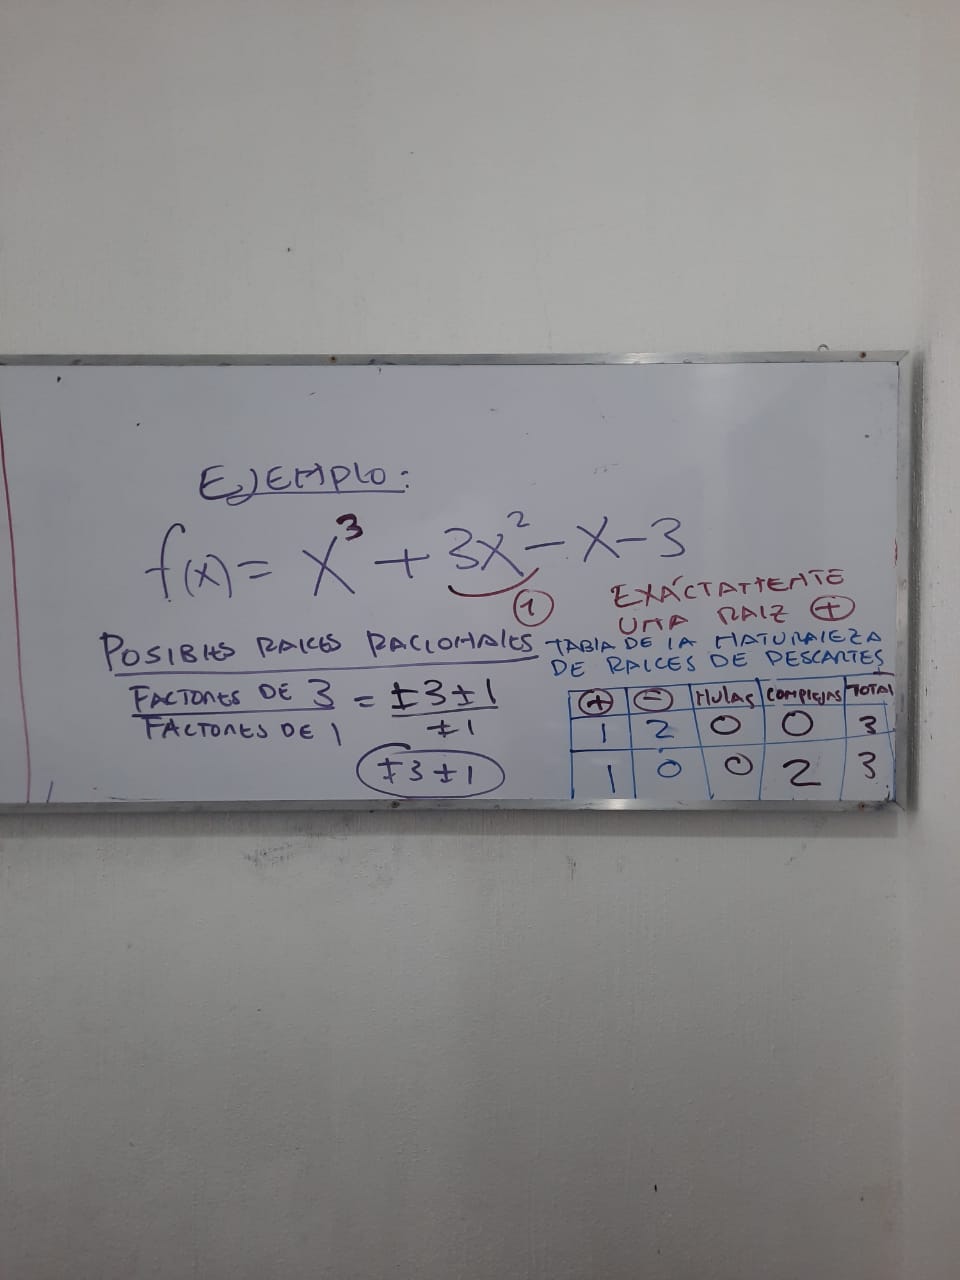 EJEMPLO:
f(x)= x³ + 3x² - x - 3
1
EXÁCTAMENTE
UNA RAIZ +
POSIBLES RAICES RACIONALES
FACTORES DE 3 = ±3 ±1
FACTORES DE 1 ±1
±3 ±1
TABLA DE LA NATURALEZA
DE RAICES DE DESCARTES
+ - NULAS COMPLEJAS TOTAL
1 2 0 0 3
1 0 0 2 3